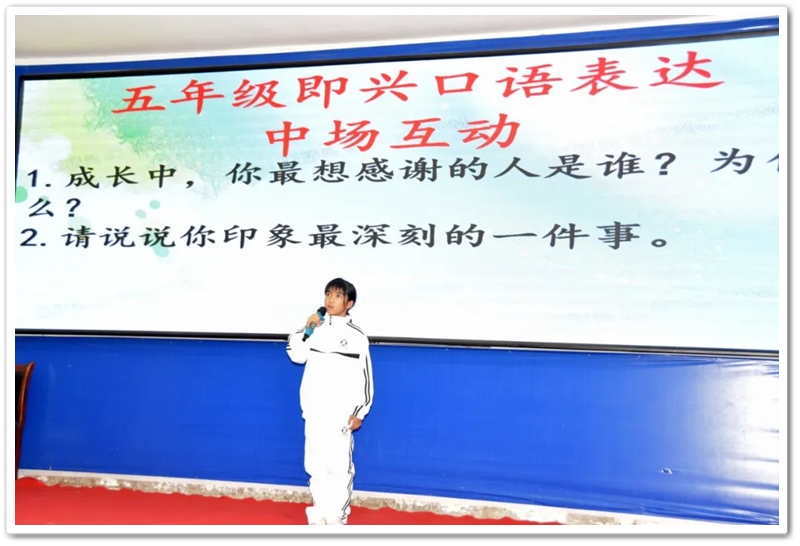 五年级即兴口语表达
中场互动
1. 成长中，你最想感谢的人是谁？ 为什
么？
2. 请说说你印象最深刻的一件事。